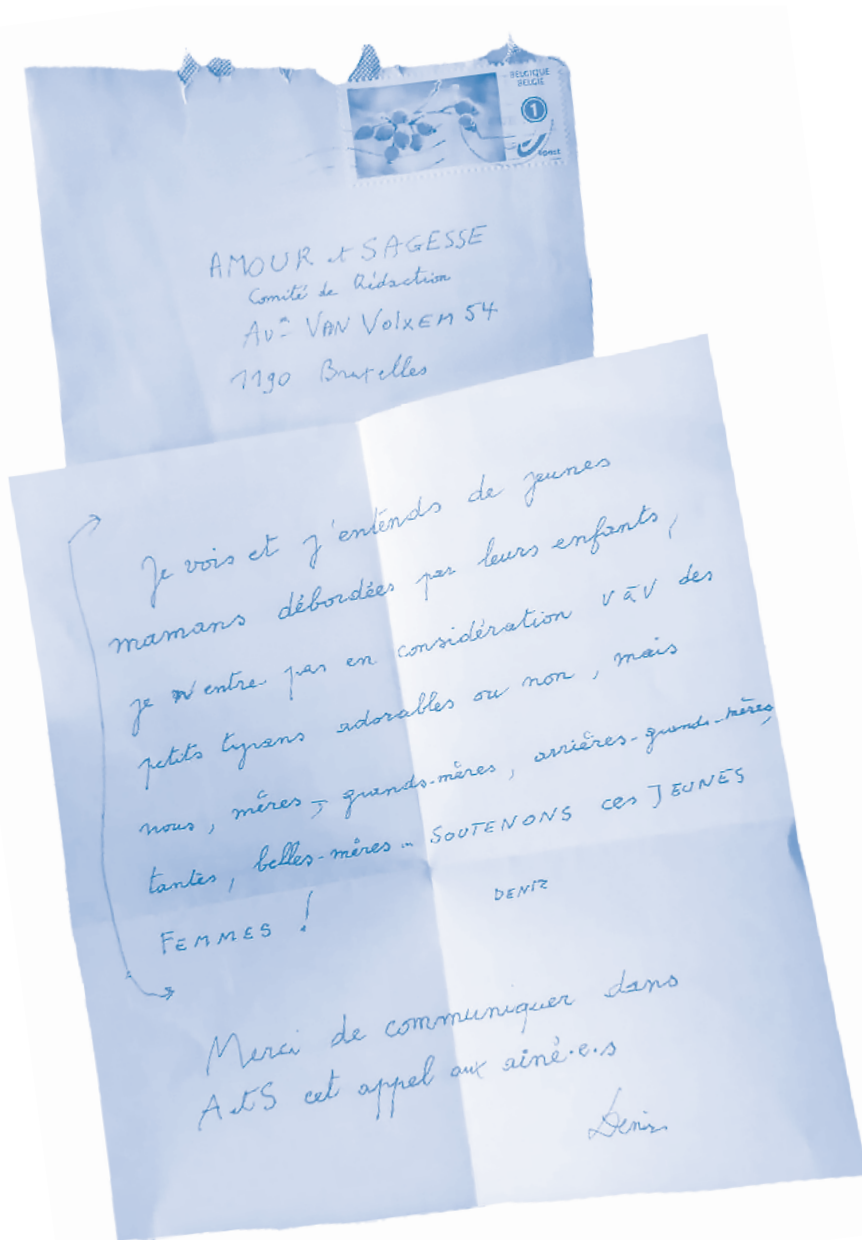 BELGIQUE
BELGIE
1
bpost
AMOUR et SAGESSE
Comité de Rédaction
Avᵉ VAN VOLXEM 54
1190 Bruxelles
Je vois et j'entends de jeunes
mamans débordées par leurs enfants,
je n'entre pas en considération v à v des
petits tyrans adorables ou non, mais
nous, mères, grands-mères, arrières-grands-mères,
tantes, belles-mères.. SOUTENONS ces JEUNES
FEMMES !
DENIZ
Merci de communiquer dans
A et S cet appel aux ainé·e·s
Deniz